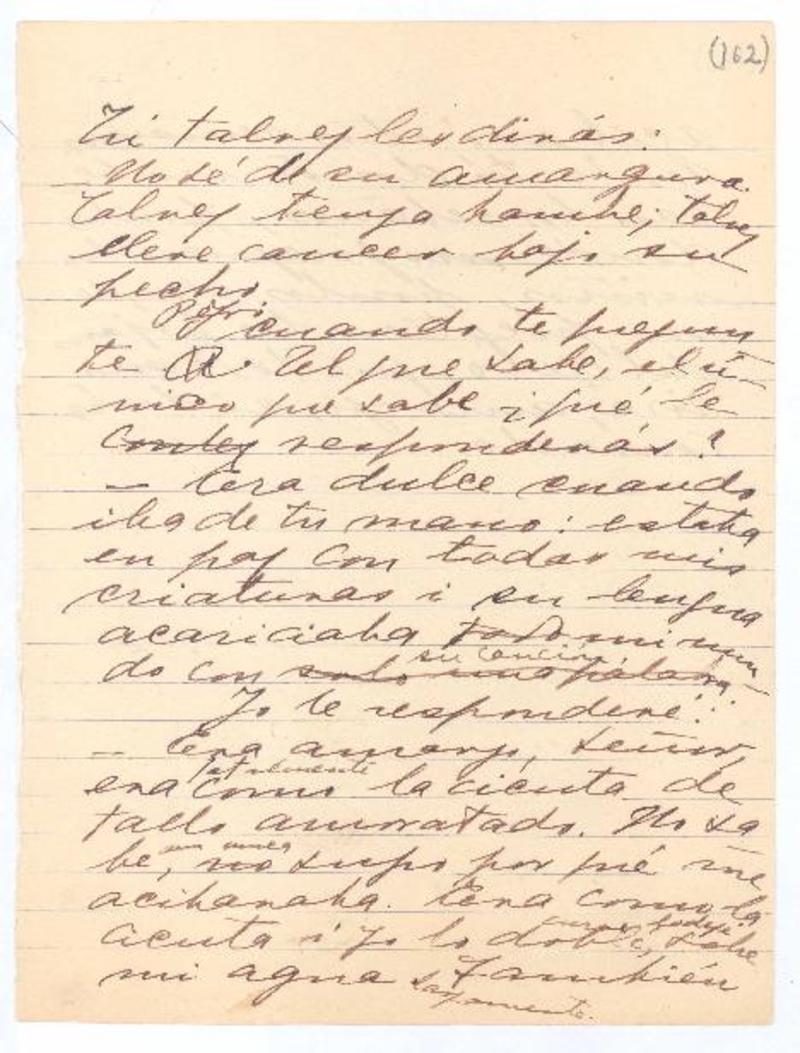 (162)
Tú talvez les dirás:
— No sé de su amargura.
Talvez tenga hambre; talvez
lleve cancer bajo su
pecho.
Pero cuando te pregun
te El que sabe, el ú-
nico que sabe ¿qué le
contes responderás?
— Era dulce cuando
iba de tu mano: estaba
en paz con todas mis
criaturas i su lengua
acariciaba todo mi mun
su canción
do con solo una palabra
Yo le responderé:
— Era amargo, Señor,
era como la cicuta de
tallo amoratado. No sa
be, no supo por qué me
acibaraba. Era como la
cicuta i yo lo doblé, sobre
mi agua también